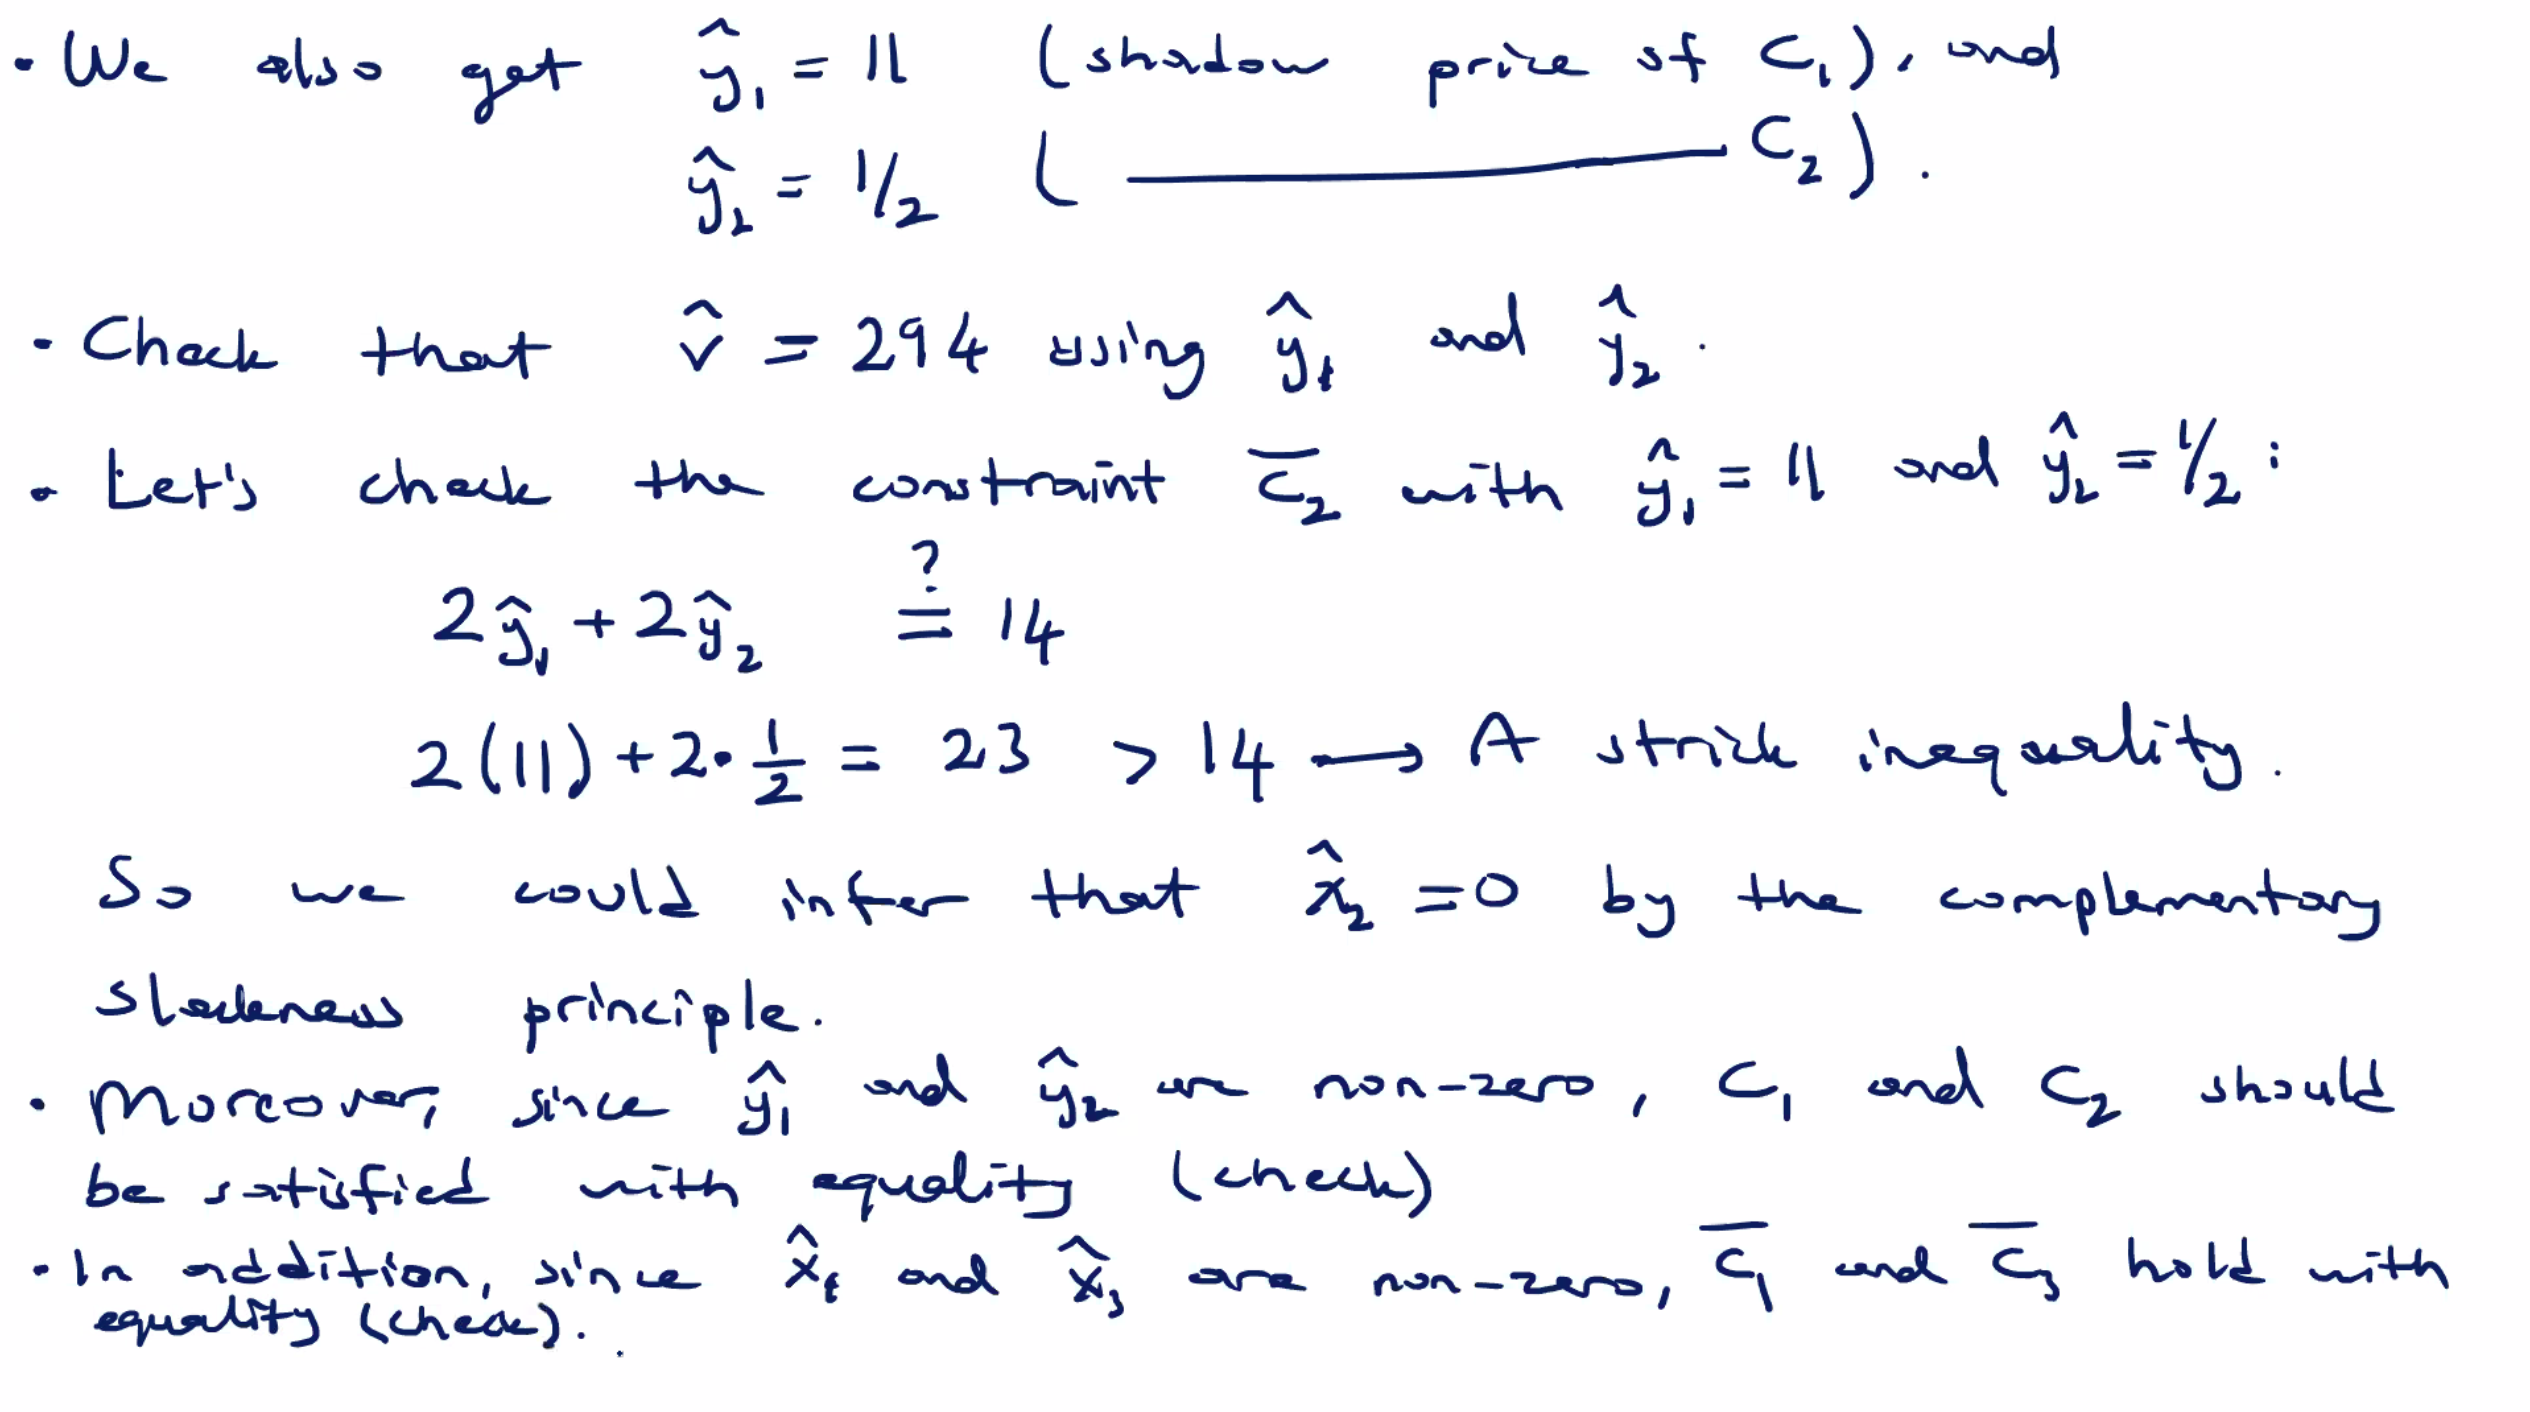 • We also get ŷ₁ = 11 (shadow price of C₁), and
ŷ₂ = 1/2 ( ———— C₂).
• Check that v̂ = 294 using ŷ₁ and ŷ₂.
• Let's check the constraint C̅₂ with ŷ₁ = 11 and ŷ₂ = 1/2 :
2ŷ₁ + 2ŷ₂ ≟ 14
2(11) + 2 • 1/2 = 23 > 14 → A strict inequality.
So we could infer that x̂₂ = 0 by the complementary
slackness principle.
• Moreover, since ŷ₁ and ŷ₂ are non-zero, C₁ and C₂ should
be satisfied with equality (check)
• In addition, since x̂₁ and x̂₃ are non-zero, C̅₁ and C̅₃ hold with
equality (check).